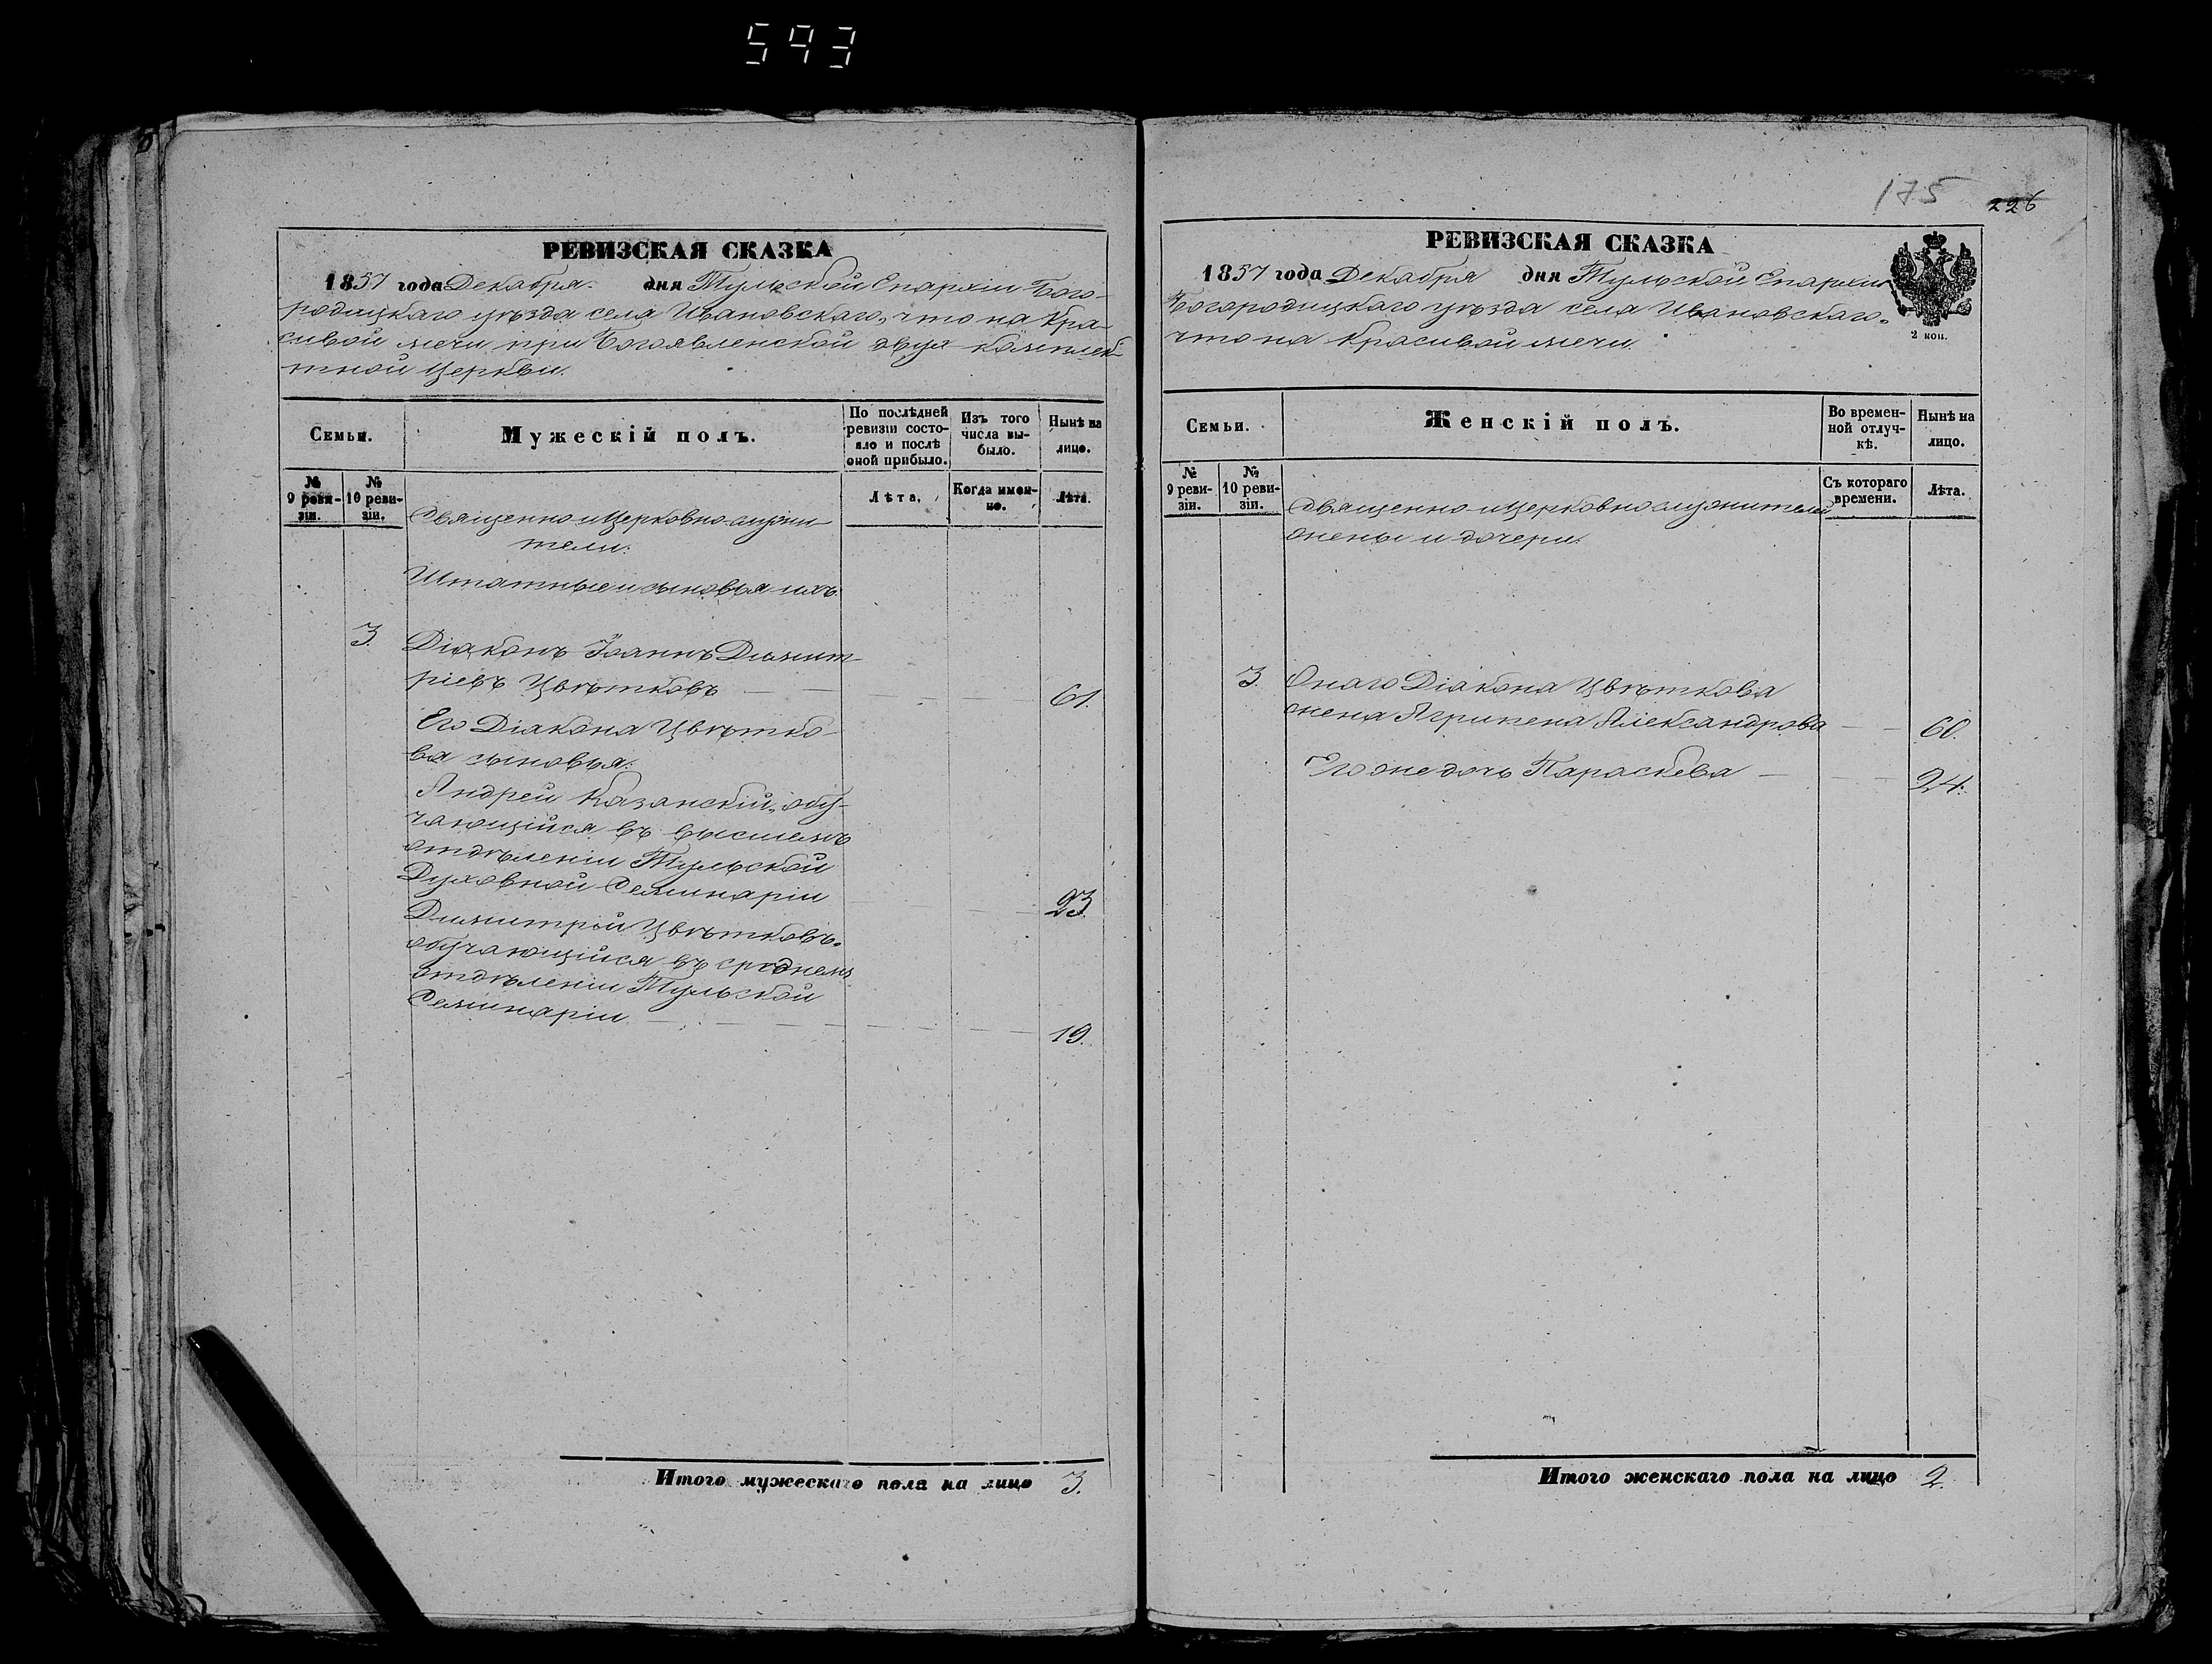 593
РЕВИЗСКАЯ СКАЗКА
1857 года Декабря дня Тульской Епархіи Бого-
родицкаго уѣзда села Ивановскаго, что на Кра-
сивой мечи при Богоявленской двух-комплек-
тной Церкви.
Семьи.
Мужескій полъ.
По послѣдней
ревизіи состо-
яло и послѣ
оной прибыло.
Изъ того
числа вы-
было.
Нынѣ на
лицо.
№
9 реви-
зіи.
№
10 реви-
зіи.
Лѣта.
Когда имен-
но.
Лѣта.
Священно-Церковно-служи-
тели:
Штатные и сыновья ихъ.
3. Діаконъ Іоаннъ Димит-
ріевъ Цвѣтковъ 61.
Его Діакона Цвѣтко-
ва сыновья:
Андрей Казанскій, обу-
чающійся въ высшемъ
отдѣленіи Тульской
Духовной Семинаріи 23
Димитрій Цвѣтковъ,
обучающійся въ среднемъ
отдѣленіи Тульской
Семинаріи 19.
Итого мужескаго пола на лицо 3.
175 226
РЕВИЗСКАЯ СКАЗКА
1857 года Декабря дня Тульской Епархіи
Богородицкаго уѣзда села Ивановскаго,
что на Красивой мечи.
2 коп.
Семьи.
Женскій полъ.
Во времен-
ной отлуч-
кѣ.
Нынѣ на
лицо.
№
9 реви-
зіи.
№
10 реви-
зіи.
Съ котораго
времени.
Лѣта.
Священно-Церковнослужителей
жены и дочери.
3. Онаго Діакона Цвѣткова
жена Агрипена Александрова 60.
Его же дочь Параскева 24.
Итого женскаго пола на лицо 2.